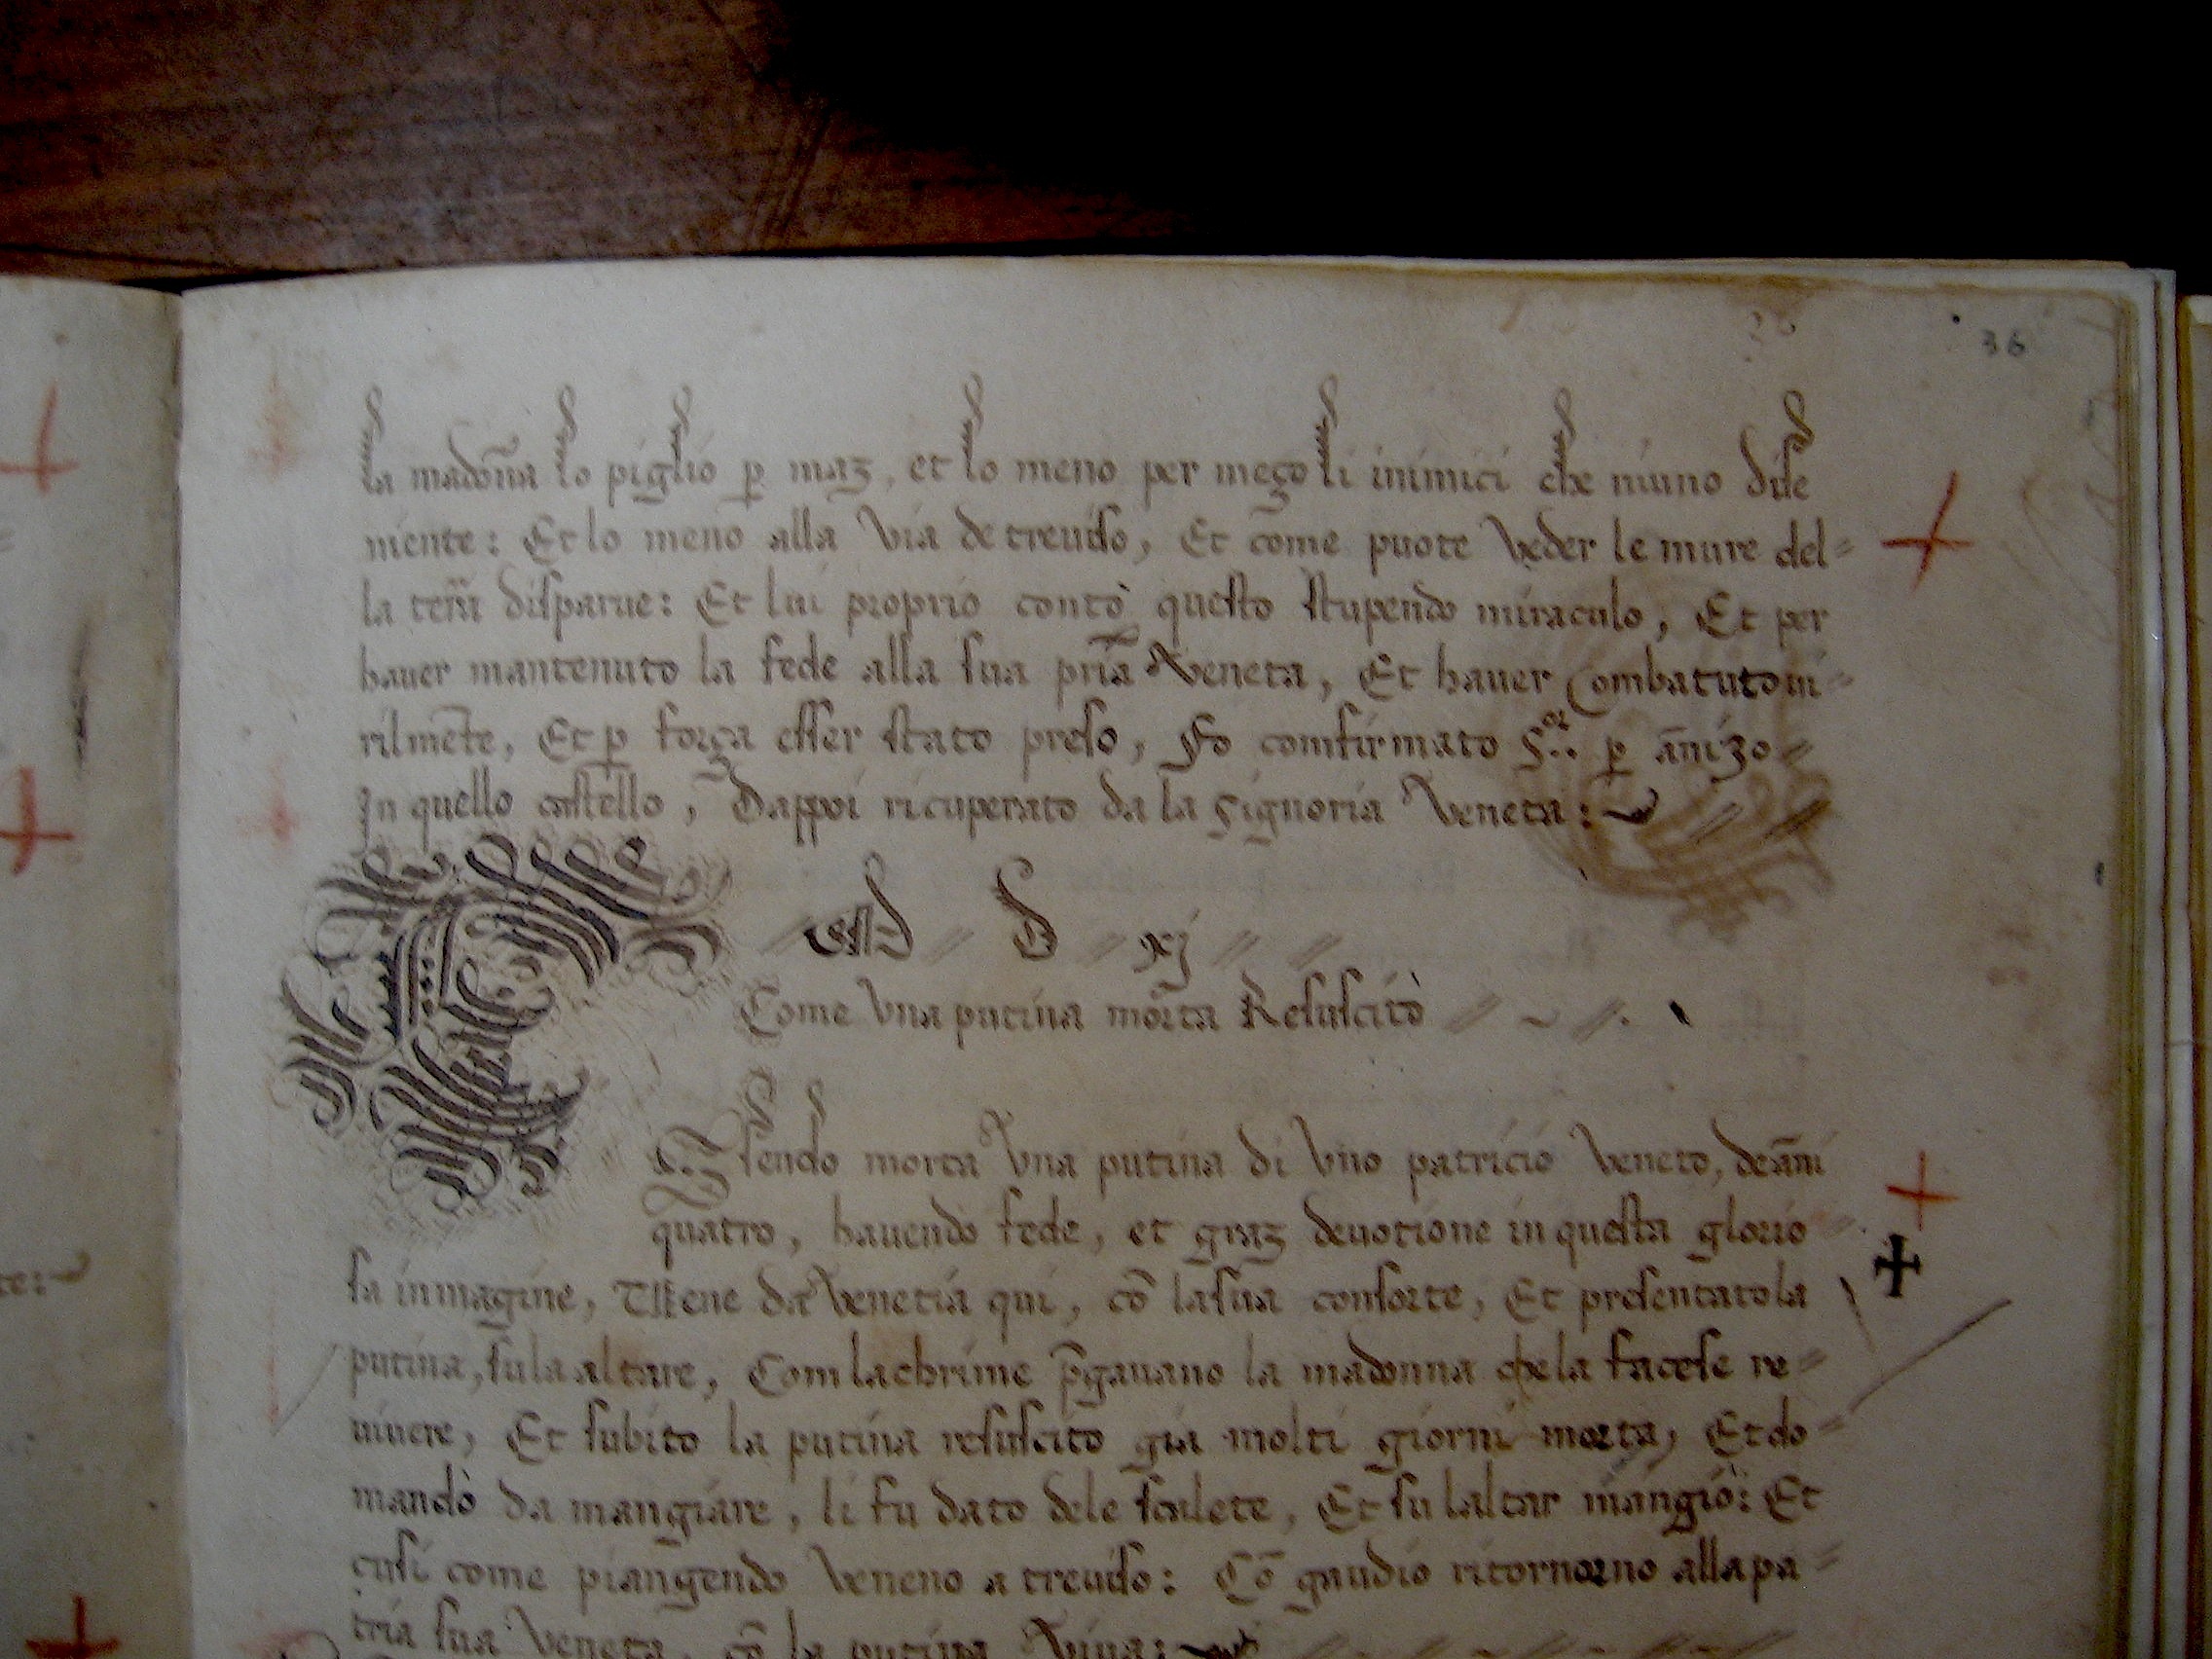 36
la madoña lo piglio p maʒ, et lo meno per meço li inimici che niuno dise
niente: Et lo meno alla via de treuiso, Et come puote veder le mure del=
la terra disparue: Et lui proprio contò questo stupendo miraculo, Et per
hauer mantenuto la fede alla sua pria Veneta, Et hauer Combatuto ui=
rilmēte, Et p força esser stato preso, Fo comfirmato p āni 30=
In quello castello, Dappoi ricuperato da la signoria Veneta:
M D xj
Come vna putina morta Resuscitò
Esendo morta vna putina di vno patricio veneto, de āni
quatro, hauendo fede, et graʒ deuotione in questa glorio=
sa inmagine, Vene da Venetia qui, cō la sua consorte, Et presentato la
putina, su la altare, Com lachrime p̄gauano la madonna che la facese re=
uiuere, Et subito la putina resuscito gia molti giorni morta, Et do=
mandò da mangiare, li fu dato dele scalete, Et su laltar mangiò: Et
cusi come piangendo veneno a treuiso: Cō gaudio ritornorno alla pa=
tria sua Veneta, cō la putina viua:
te: